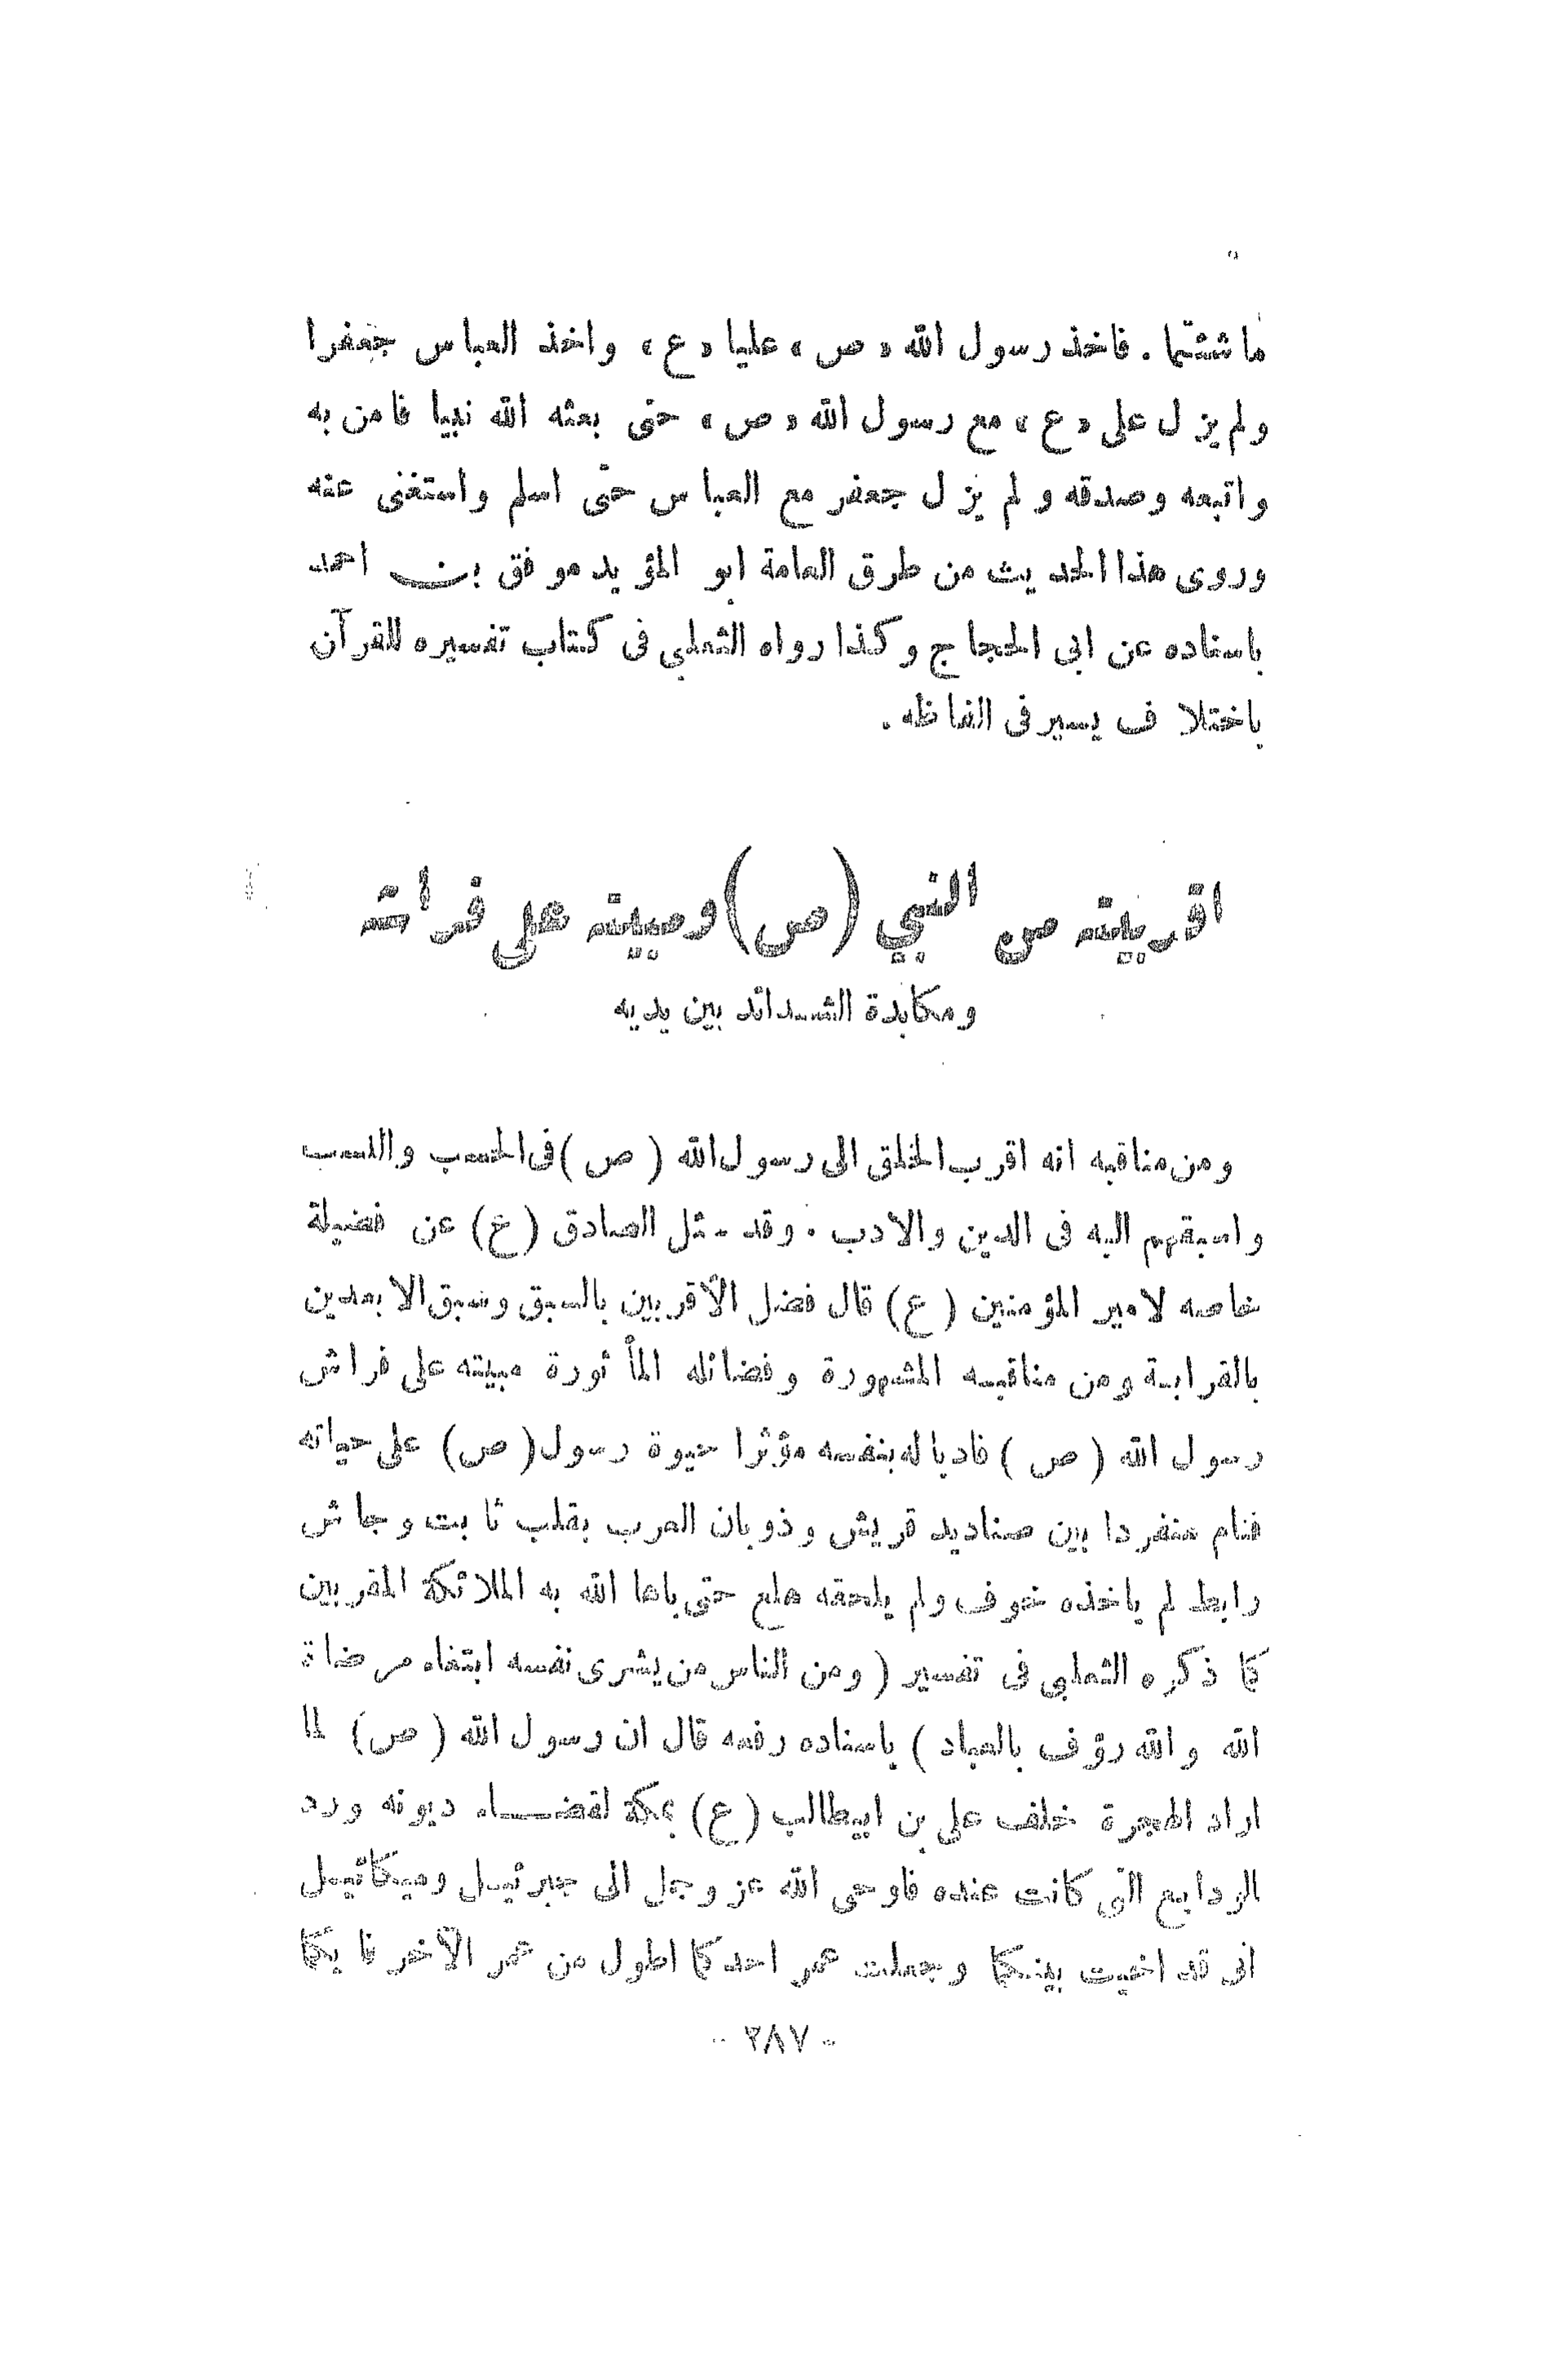 ما شئتما. فاخذ رسول الله «ص» عليا «ع» واخذ العباس جعفرا
ولم يزل على «ع» مع رسول الله «ص» حتى بعثه الله نبيا فامن به
واتبعه وصدقه ولم يزل جعفر مع العباس حتى اسلم واستغنى عنه
وروى هذا الحديث من طرق العامة ابو المؤيد موفق بن احمد
باسناده عن ابى الحجاج وكذا رواه الثعلبي فى كتاب تفسيره للقرآن
باختلاف يسير فى الفاظه .
اقربيته من النبي (ص) ومبيته على فراشه
ومكابدة الشدائد بين يديه
ومن مناقبه انه اقرب الخلق الى رسول الله ( ص ) فى الحسب والنسب
واسبقهم اليه فى الدين والادب . وقد سئل الصادق (ع) عن فضيلة
خاصه لامير المؤمنين (ع) قال فضل الاقربين بالسبق وسبق الابعدين
بالقرابة ومن مناقبه المشهورة وفضائله المأثورة مبيته على فراش
رسول الله ( ص ) فاديا له بنفسه مؤثرا حيوة رسول ( ص ) على حياته
فنام منفردا بين صناديد قريش وذوبان العرب بقلب ثابت وجاش
رابط لم ياخذه خوف ولم يلحقه هلع حتى باها الله به الملائكة المقربين
كما ذكره الثعلبى فى تفسير ( ومن الناس من يشرى نفسه ابتغاء مرضاة
الله والله رؤف بالعباد ) باسناده رفعه قال ان رسول الله ( ص ) لما
اراد الهجرة خلف على بن ابيطالب (ع) بمكة لقضاء ديونه ورد
الودايع التى كانت عنده فاوحى الله عز وجل الى جبرئيل وميكائيل
انى قد اخيت بينكما وجعلت عمر احدكما اطول من عمر الآخر فايكما
- ٢٨٧ -